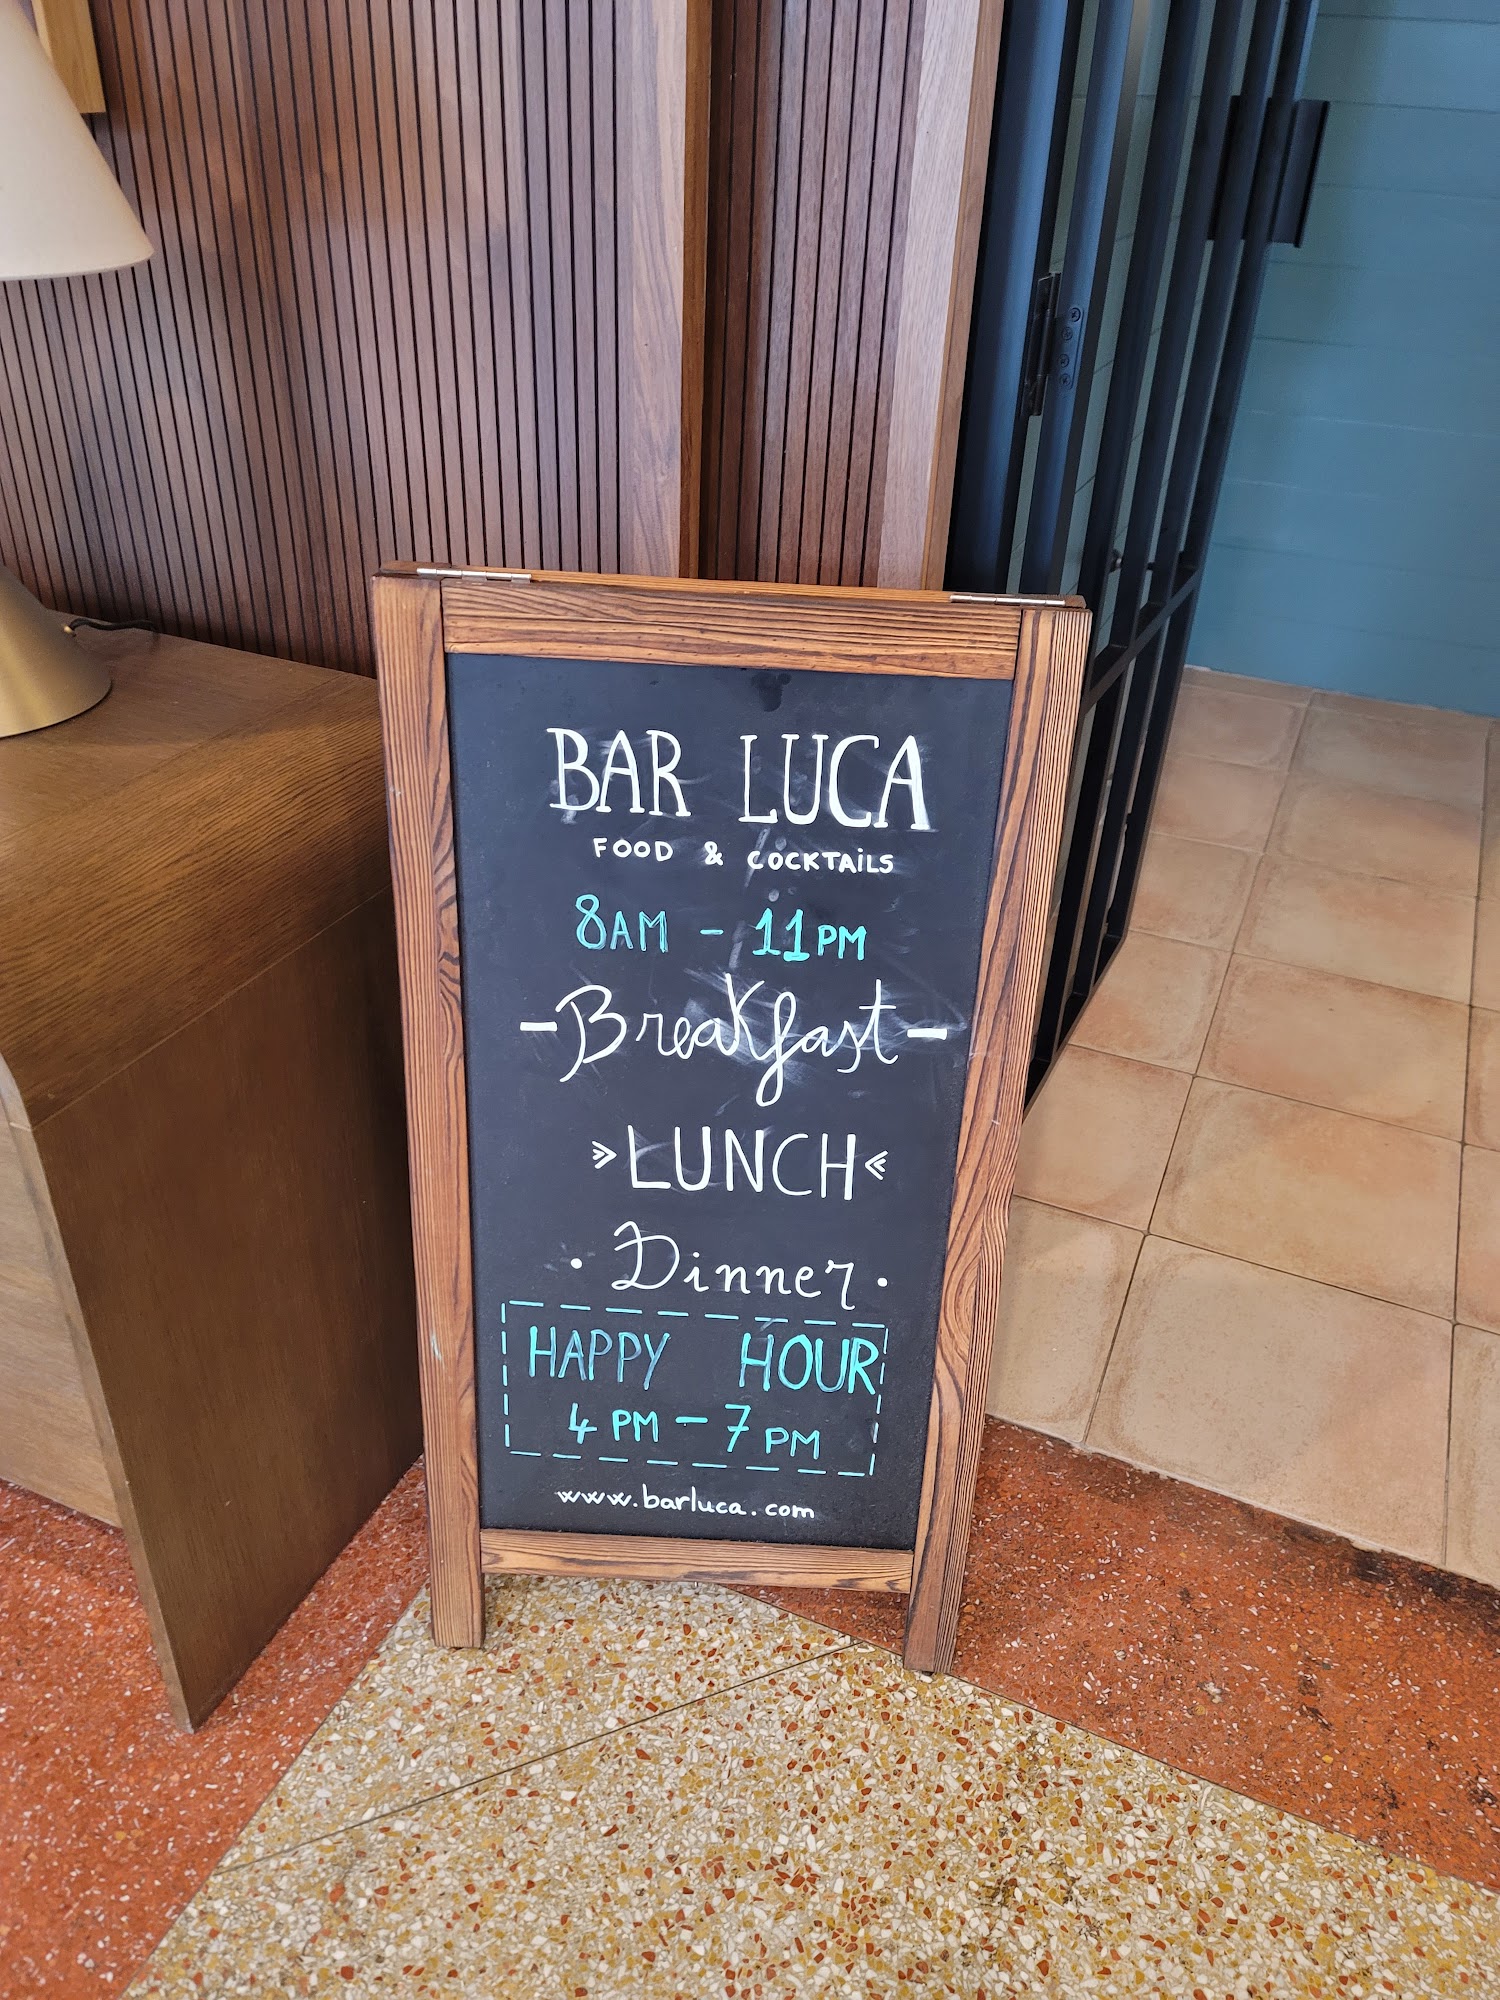 BAR LUCA
FOOD & COCKTAiLS
8AM - 11PM
-Breakfast-
»LUNCH«
· Dinner ·
HAPPY HOUR
4 PM - 7 PM
www.barluca.com